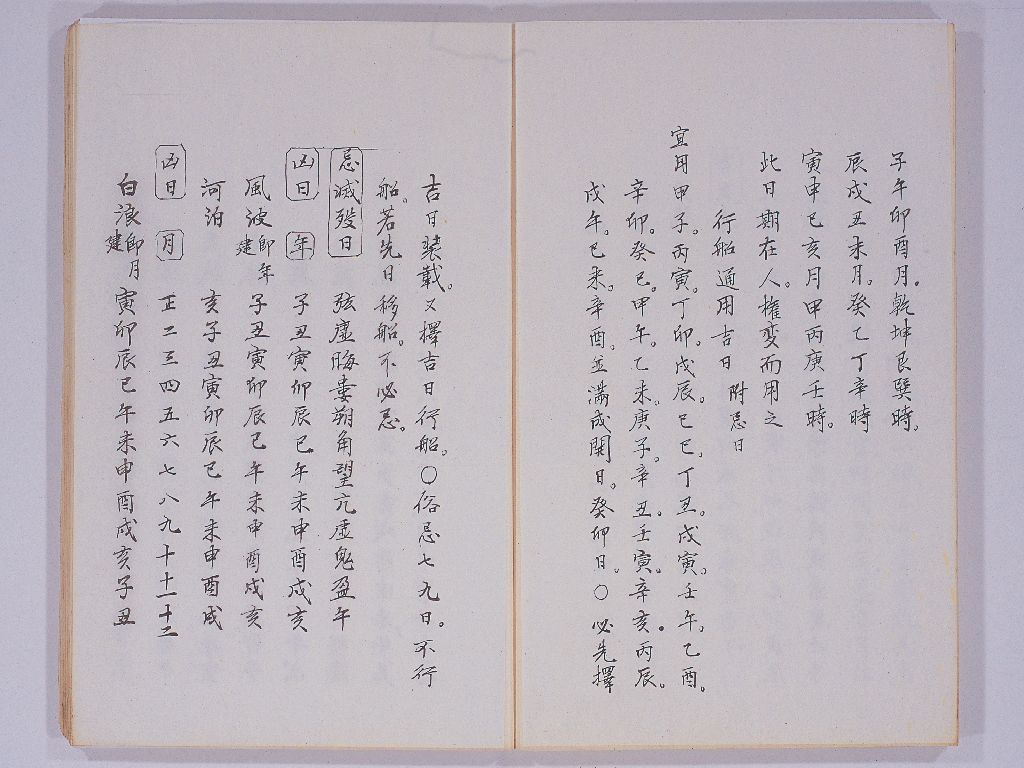 子午卯酉月。乾坤艮巽時。
辰戌丑未月。癸乙丁辛時
寅申巳亥月甲丙庚壬時。
此日期在人。權変而用之
行船通用吉日 附忌日
宜用甲子。丙寅。丁卯。戊辰。己巳。丁丑。戊寅。壬午。乙酉。
辛卯。癸巳。甲午。乙未。庚子。辛丑。壬寅。辛亥。丙辰。
戊午。己未。辛酉。並滿成開日。癸卯日。○必先擇
吉日裝載。又擇吉日行船。○俗忌七九日。不行
船。若先日移船。不必忌。
忌滅殁日 弦虛晦婁朔角望亢虛鬼盈牛
凶日 年 子丑寅卯辰巳午未申酉戌亥
風波即年建 子丑寅卯辰巳午未申酉戌亥
河泊 亥子丑寅卯辰巳午未申酉戌
凶日 月 正二三四五六七八九十十一十二
白浪即月建 寅卯辰巳午未申酉戌亥子丑